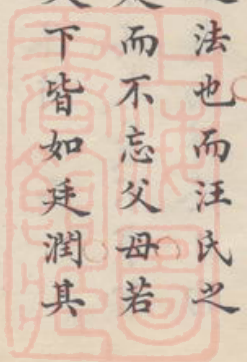 法也而汪氏之
而不忘父母若
下皆如廷潤其